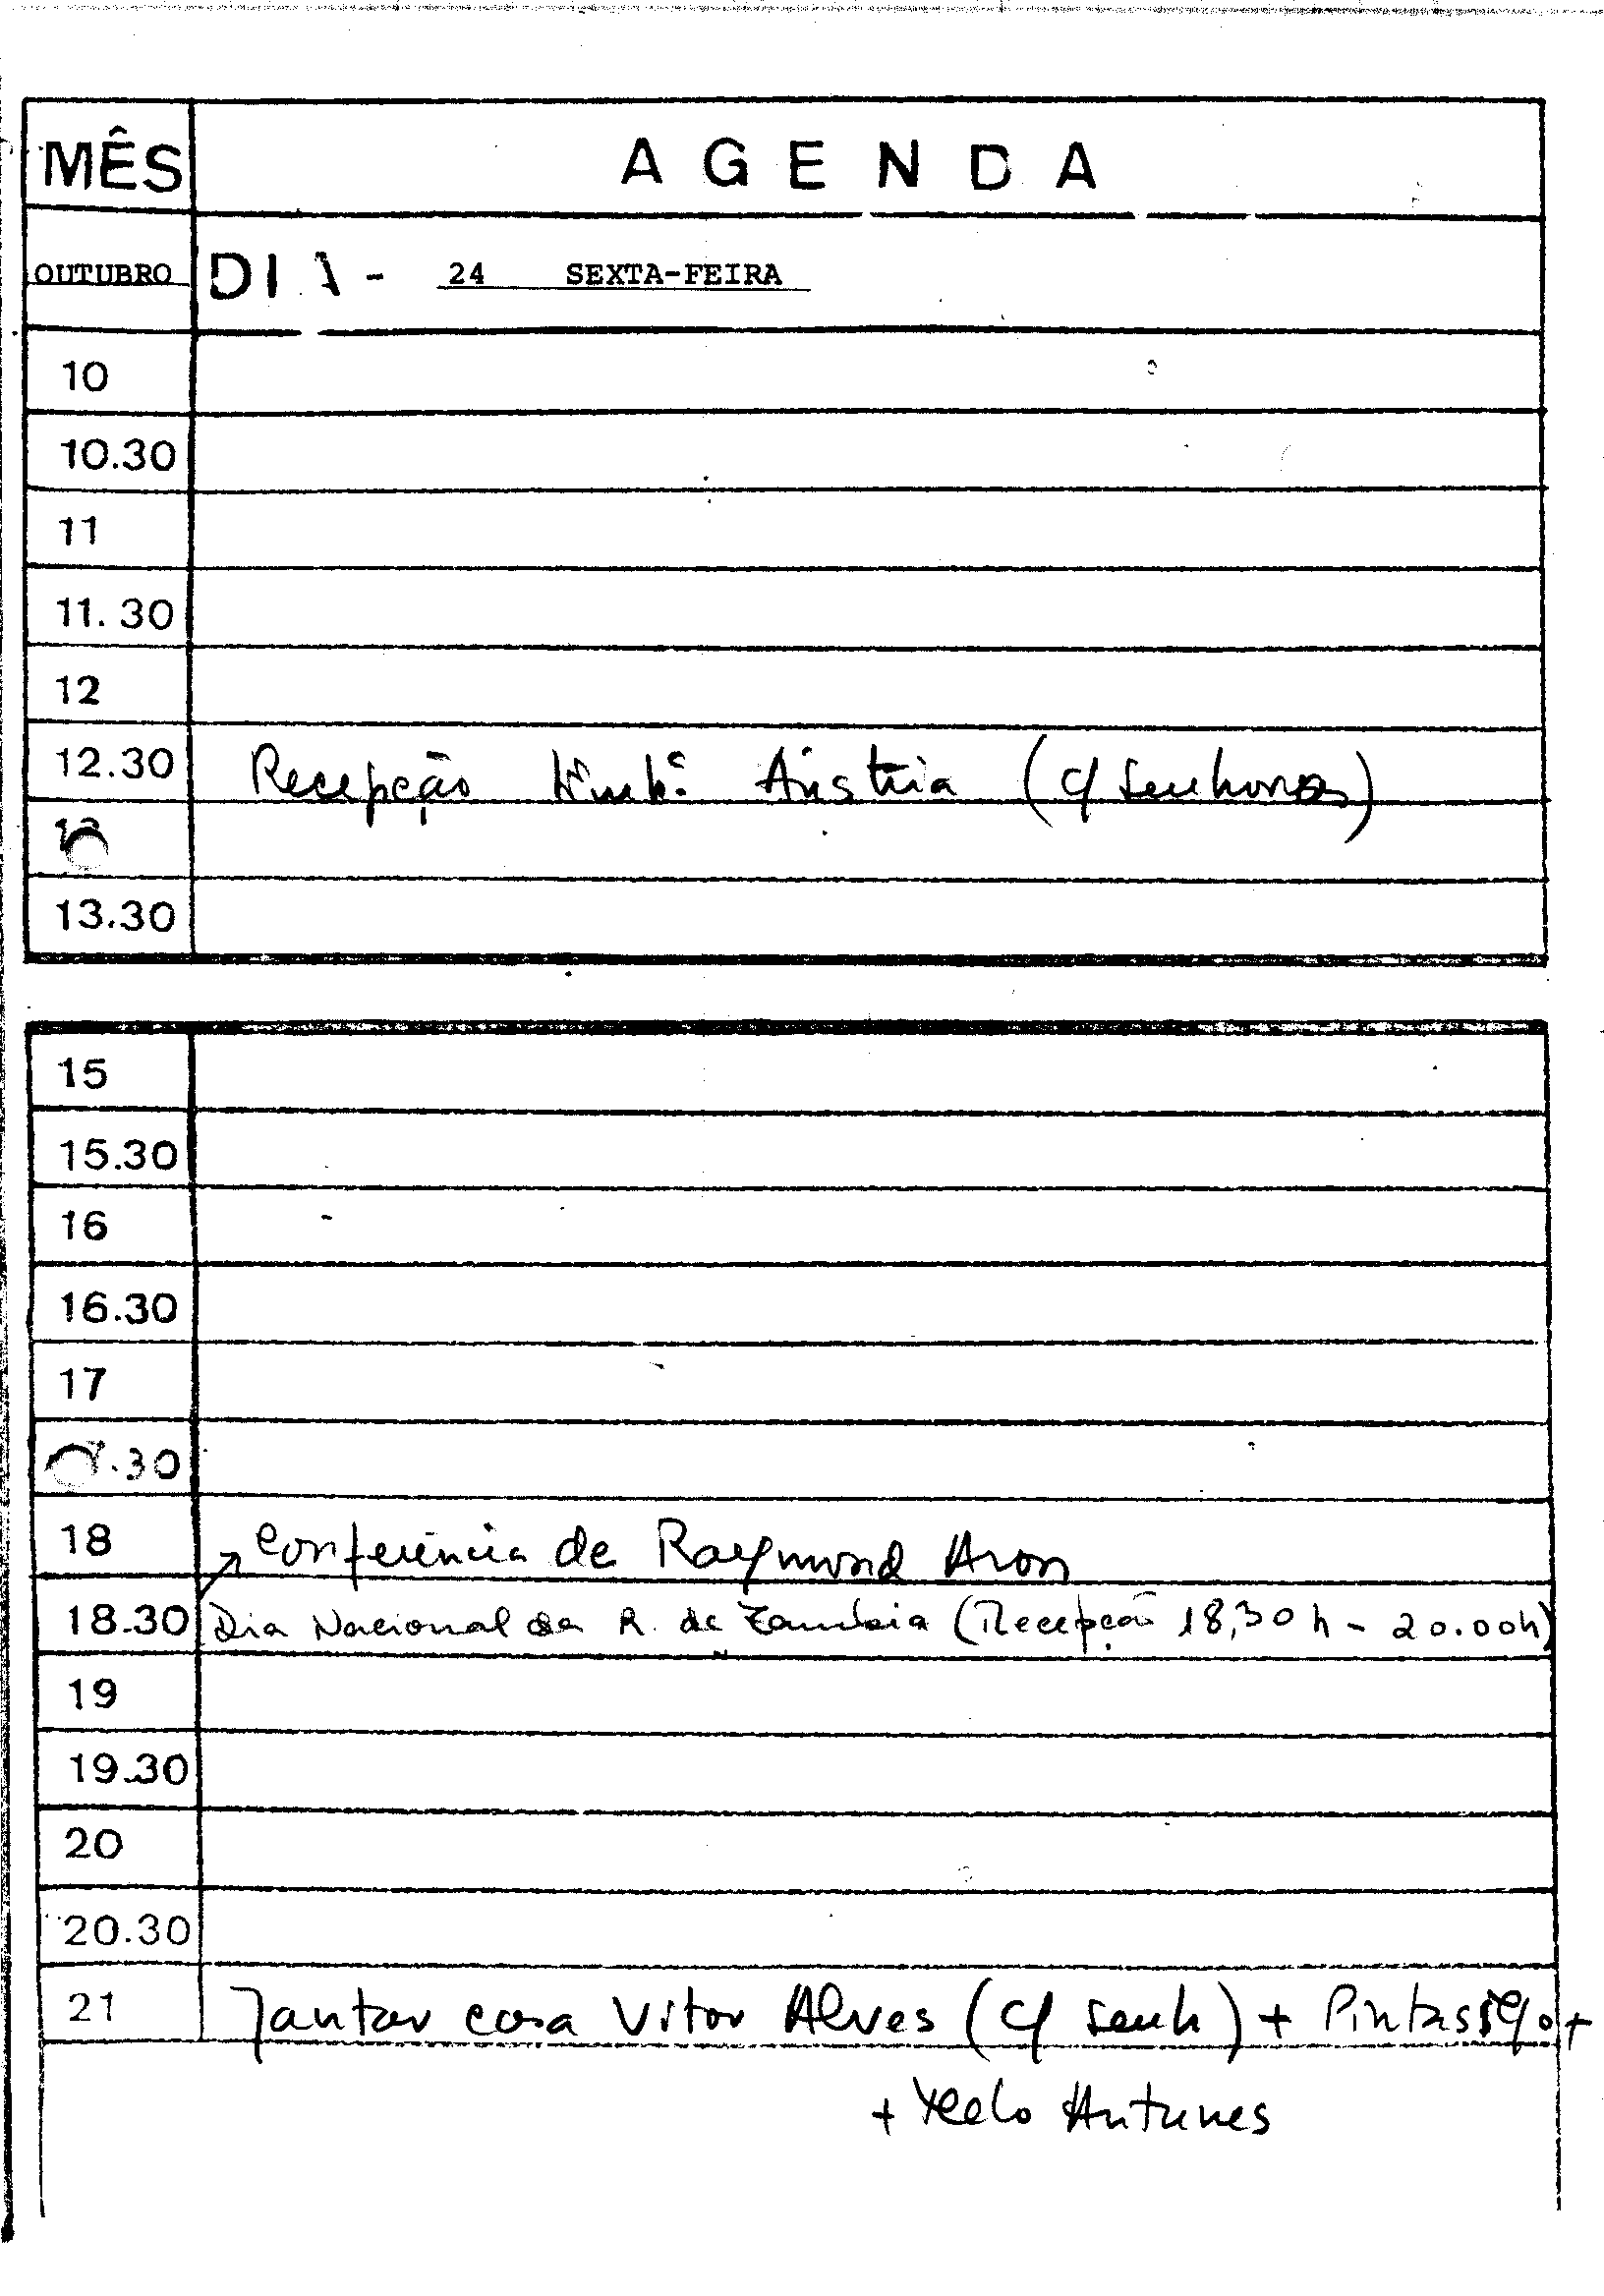 MÊS AGENDA
OUTUBRO DIA - 24 SEXTA-FEIRA
10
10.30
11
11.30
12
12.30 Recepção Áustria (c/ senhoras)
13
13.30
15
15.30
16
16.30
17
.30
18 Conferência de Raymond Aron
18.30 Dia Nacional da R. da Zambia (Recepção 18,30 h - 20.00h)
19
19.30
20
20.30
21 Jantar casa Vitor Alves (c/ senh) + Pintassilgo +
+ Melo Antunes